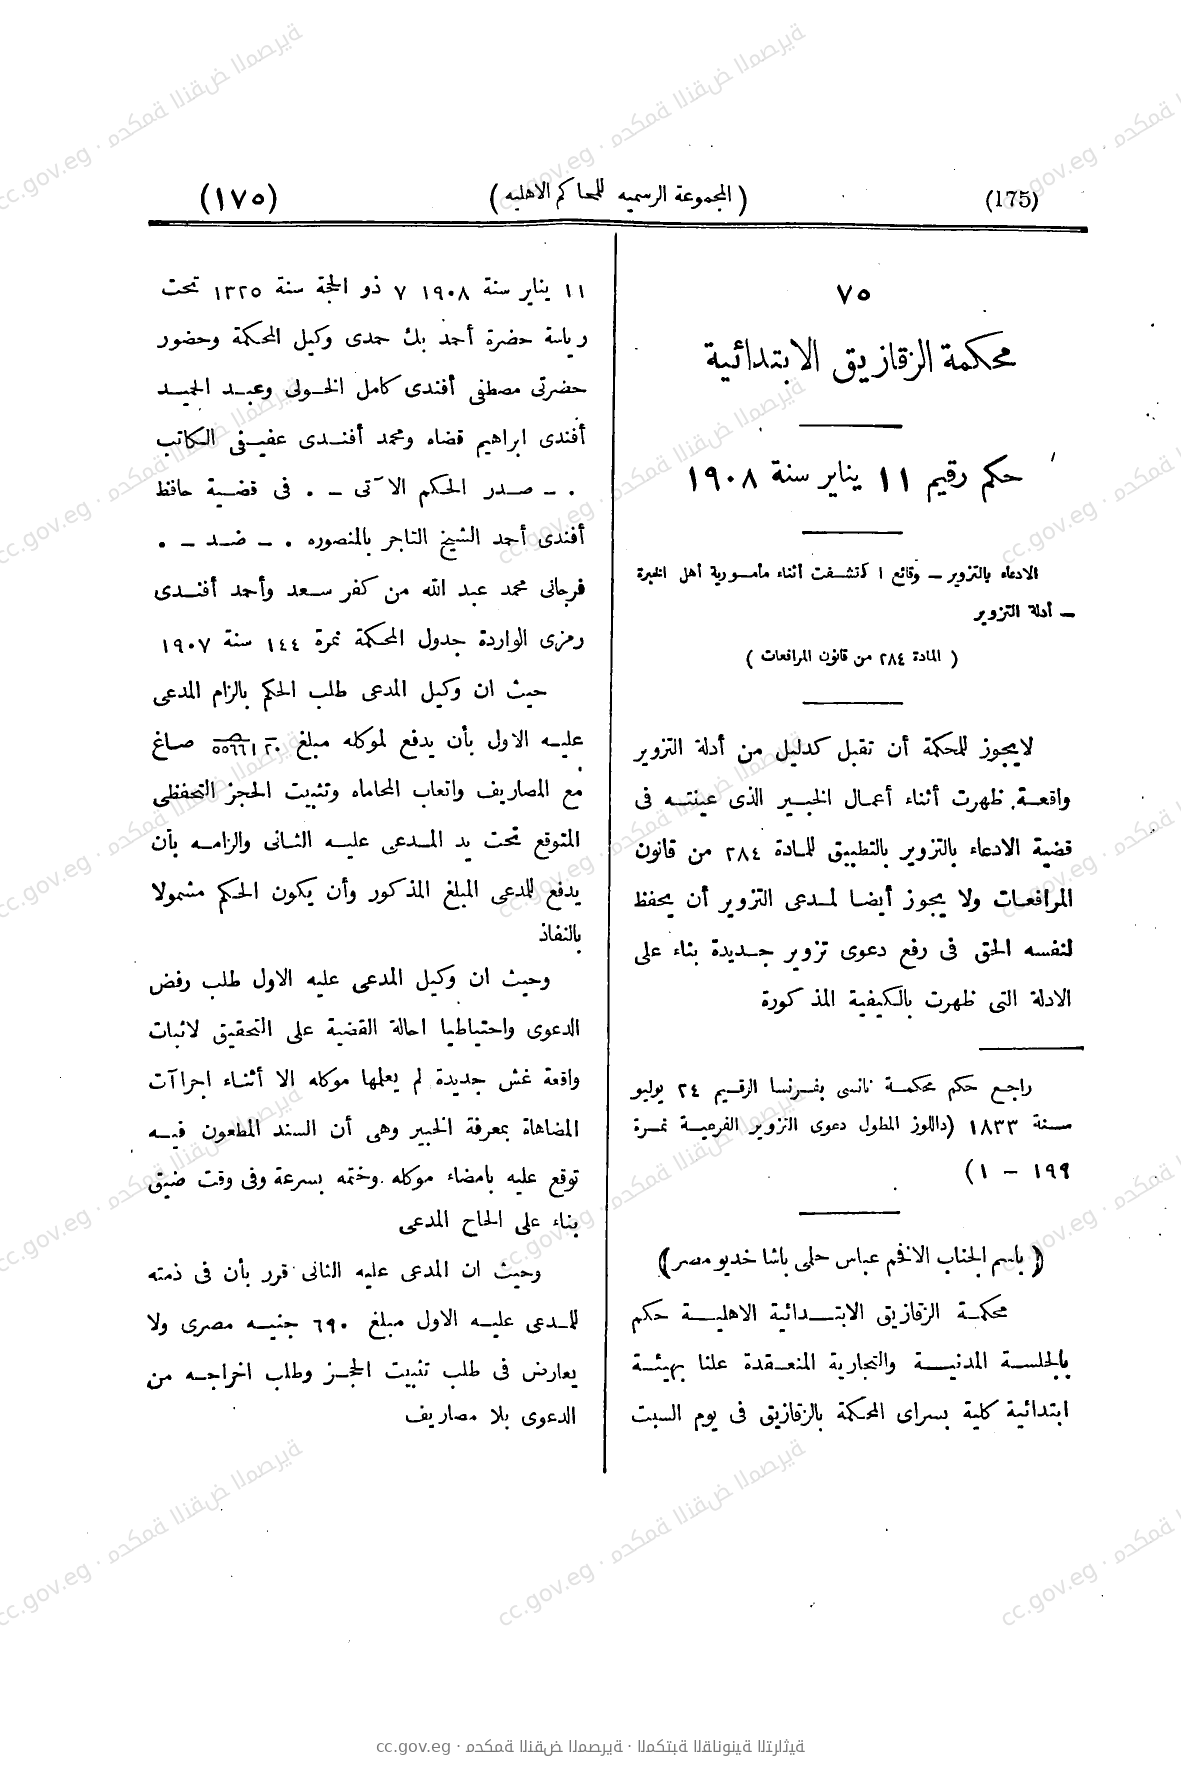 (175) (المجموعة الرسميه للمحاكم الاهليه) (١٧٥)
٧٥
محكمة الزقازيق الابتدائية
حكم رقيم ١١ يناير سنة ١٩٠٨
الادعاء بالتزوير – وقائع اكتشفت أثناء مأمورية أهل الخبرة
– أدلة التزوير
( المادة ٢٨٤ من قانون المرافعات )
لايجوز للمحكمة أن تقبل كدليل من أدلة التزوير
واقعة ظهرت أثناء أعمال الخبير الذى عينته فى
قضية الادعاء بالتزوير بالتطبيق للمادة ٢٨٤ من قانون
المرافعات ولا يجوز أيضا لمدعى التزوير أن يحفظ
لنفسه الحق فى رفع دعوى تزوير جديدة بناء على
الادلة التى ظهرت بالكيفية المذكورة
راجع حكم محكمة نانسى بفرنسا الرقيم ٢٤ يوليو
سنة ١٨٣٣ (داللوز المطول دعوى التزوير الفرعية نمرة
١٩٩ – ١)
(باسم الجناب الافخم عباس حلمى باشا خديو مصر)
محكمة الزقازيق الابتدائية الاهلية حكم
بالجلسة المدنية والتجارية المنعقدة علنا بهيئة
ابتدائية كلية بسراى المحكمة بالزقازيق فى يوم السبت
١١ يناير سنة ١٩٠٨ ٧ ذو الحجة سنة ١٣٢٥ تحت
رياسة حضرة أحمد بك حمدى وكيل المحكمة وحضور
حضرتى مصطفى أفندى كامل الخولى وعبد المجيد
أفندى ابراهيم قضاه ومحمد أفندى عفيفى الكاتب
. – صدر الحكم الآتى – . فى قضية حافظ
أفندى أحمد الشيخ التاجر بالمنصوره . – ضد – .
فرجانى محمد عبد الله من كفر سعد وأحمد أفندى
رمزى الواردة جدول المحكمة نمرة ١٤٤ سنة ١٩٠٧
حيث ان وكيل المدعى طلب الحكم بالزام المدعى
عليه الاول بأن يدفع لموكله مبلغ صاغ
مع المصاريف واتعاب المحاماه وتثبيت الحجز التحفظى
المتوقع تحت يد المدعى عليه الثانى والزامه بأن
يدفع للمدعى المبلغ المذكور وأن يكون الحكم مشمولا
بالنفاذ
وحيث ان وكيل المدعى عليه الاول طلب رفض
الدعوى واحتياطيا احالة القضية على التحقيق لاثبات
واقعة غش جديدة لم يعلمها موكله الا أثناء اجراآت
المضاهاة بمعرفة الخبير وهى أن السند المطعون فيه
توقع عليه بامضاء موكله وختمه بسرعة وفى وقت ضيق
بناء على الحاح المدعى
وحيث ان المدعى عليه الثانى قرر بأن فى ذمته
للمدعى عليه الاول مبلغ ٦٩٠ جنيه مصرى ولا
يعارض فى طلب تثبيت الحجز وطلب اخراجه من
الدعوى بلا مصاريف
cc.gov.eg · محكمة النقض المصرية · المكتبة القانونية التراثية